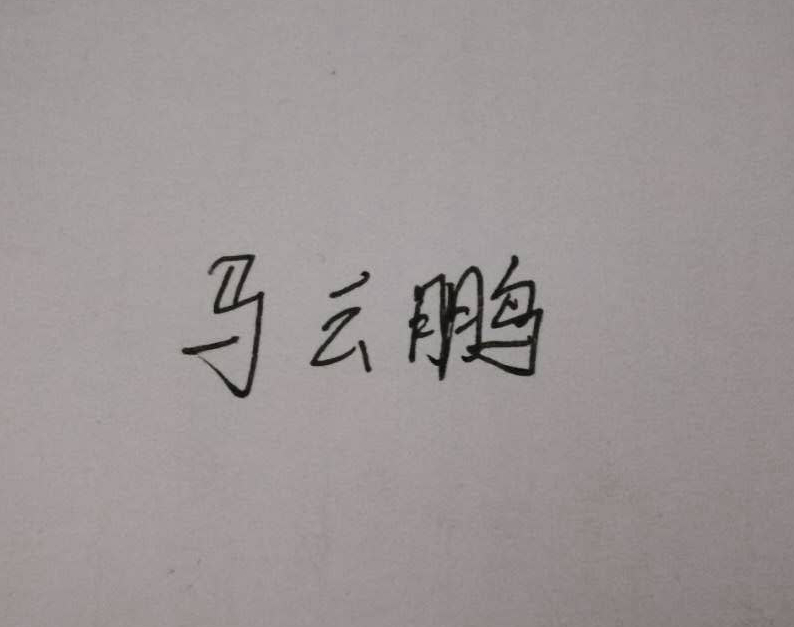 马云鹏